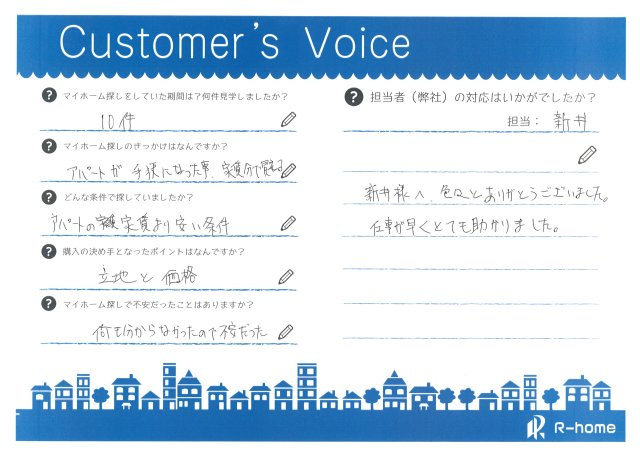 Customer's Voice
? マイホーム探しをしていた期間は？何件見学しましたか？
10件
? マイホーム探しのきっかけはなんですか？
アパートが手狭になった事、家賃分で買える
? どんな条件で探していましたか？
アパートの家賃より安い条件
? 購入の決め手となったポイントはなんですか？
立地と価格
? マイホーム探しで不安だったことはありますか？
何も分からなかったので不安だった
? 担当者（弊社）の対応はいかがでしたか？
担当： 新井
新井様へ、色々とありがとうございました。
仕事が早くとても助かりました。
R-home